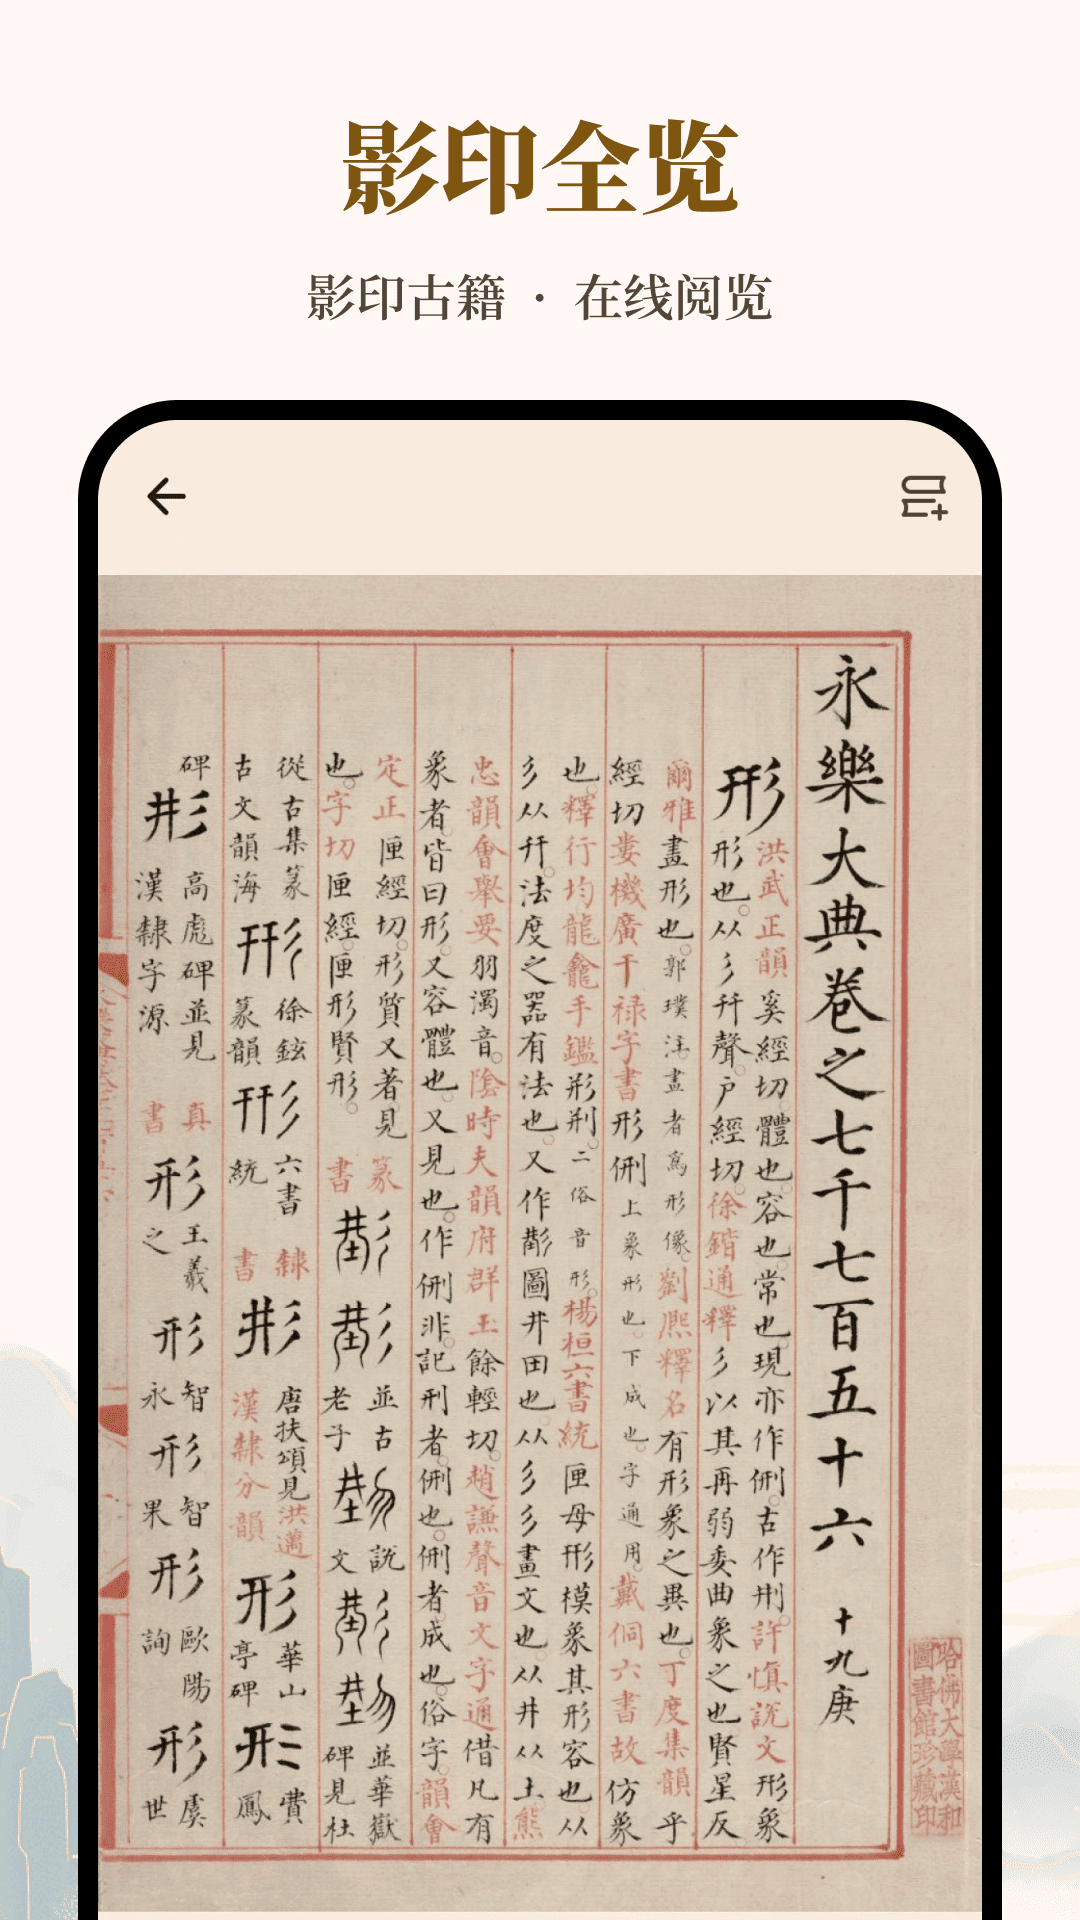 影印全览
影印古籍 · 在线阅览
永樂大典卷之七千七百五十六 十九庚
形
洪武正韻奚經切體也容也常也現亦作侀古作㓝許慎說文形象
形也从彡幵聲户經切徐鍇通釋彡以其再弱委曲象之也賢星反
爾雅畫形也郭璞注畫者為形像劉熙釋名有形象之異也丁度集韻乎
經切婁機廣干禄字書形侀上象形也下成也字通用戴侗六書故仿象
也釋行均龍龕手鑑形㓝二俗音形楊桓六書統匣母形模象其形容也从
彡从幵法度之器有法也又作圖井田也从彡彡畫文也从井从土熊
忠韻會舉要羽濁音陰時夫韻府群玉餘輕切趙謙聲音文字通借凡有
象者皆曰形又容體也又見也作侀非記刑者侀也侀者成也俗字韻會
定正匣經切形質又著見
也字切匣經匣形賢形
篆書
並古老子
說文
並華嶽碑見杜
從古集篆古文韻海
形
徐鉉篆韻
形
六書統
隸書
形
唐扶頌見洪邁漢隸分韻
形
華山亭碑
形
費鳳碑
形
高彪碑並見漢隸字源
真書
形
王羲之
形
智永
形
智果
形
歐陽詢
形
虞世
哈佛大學漢和圖書館珍藏印